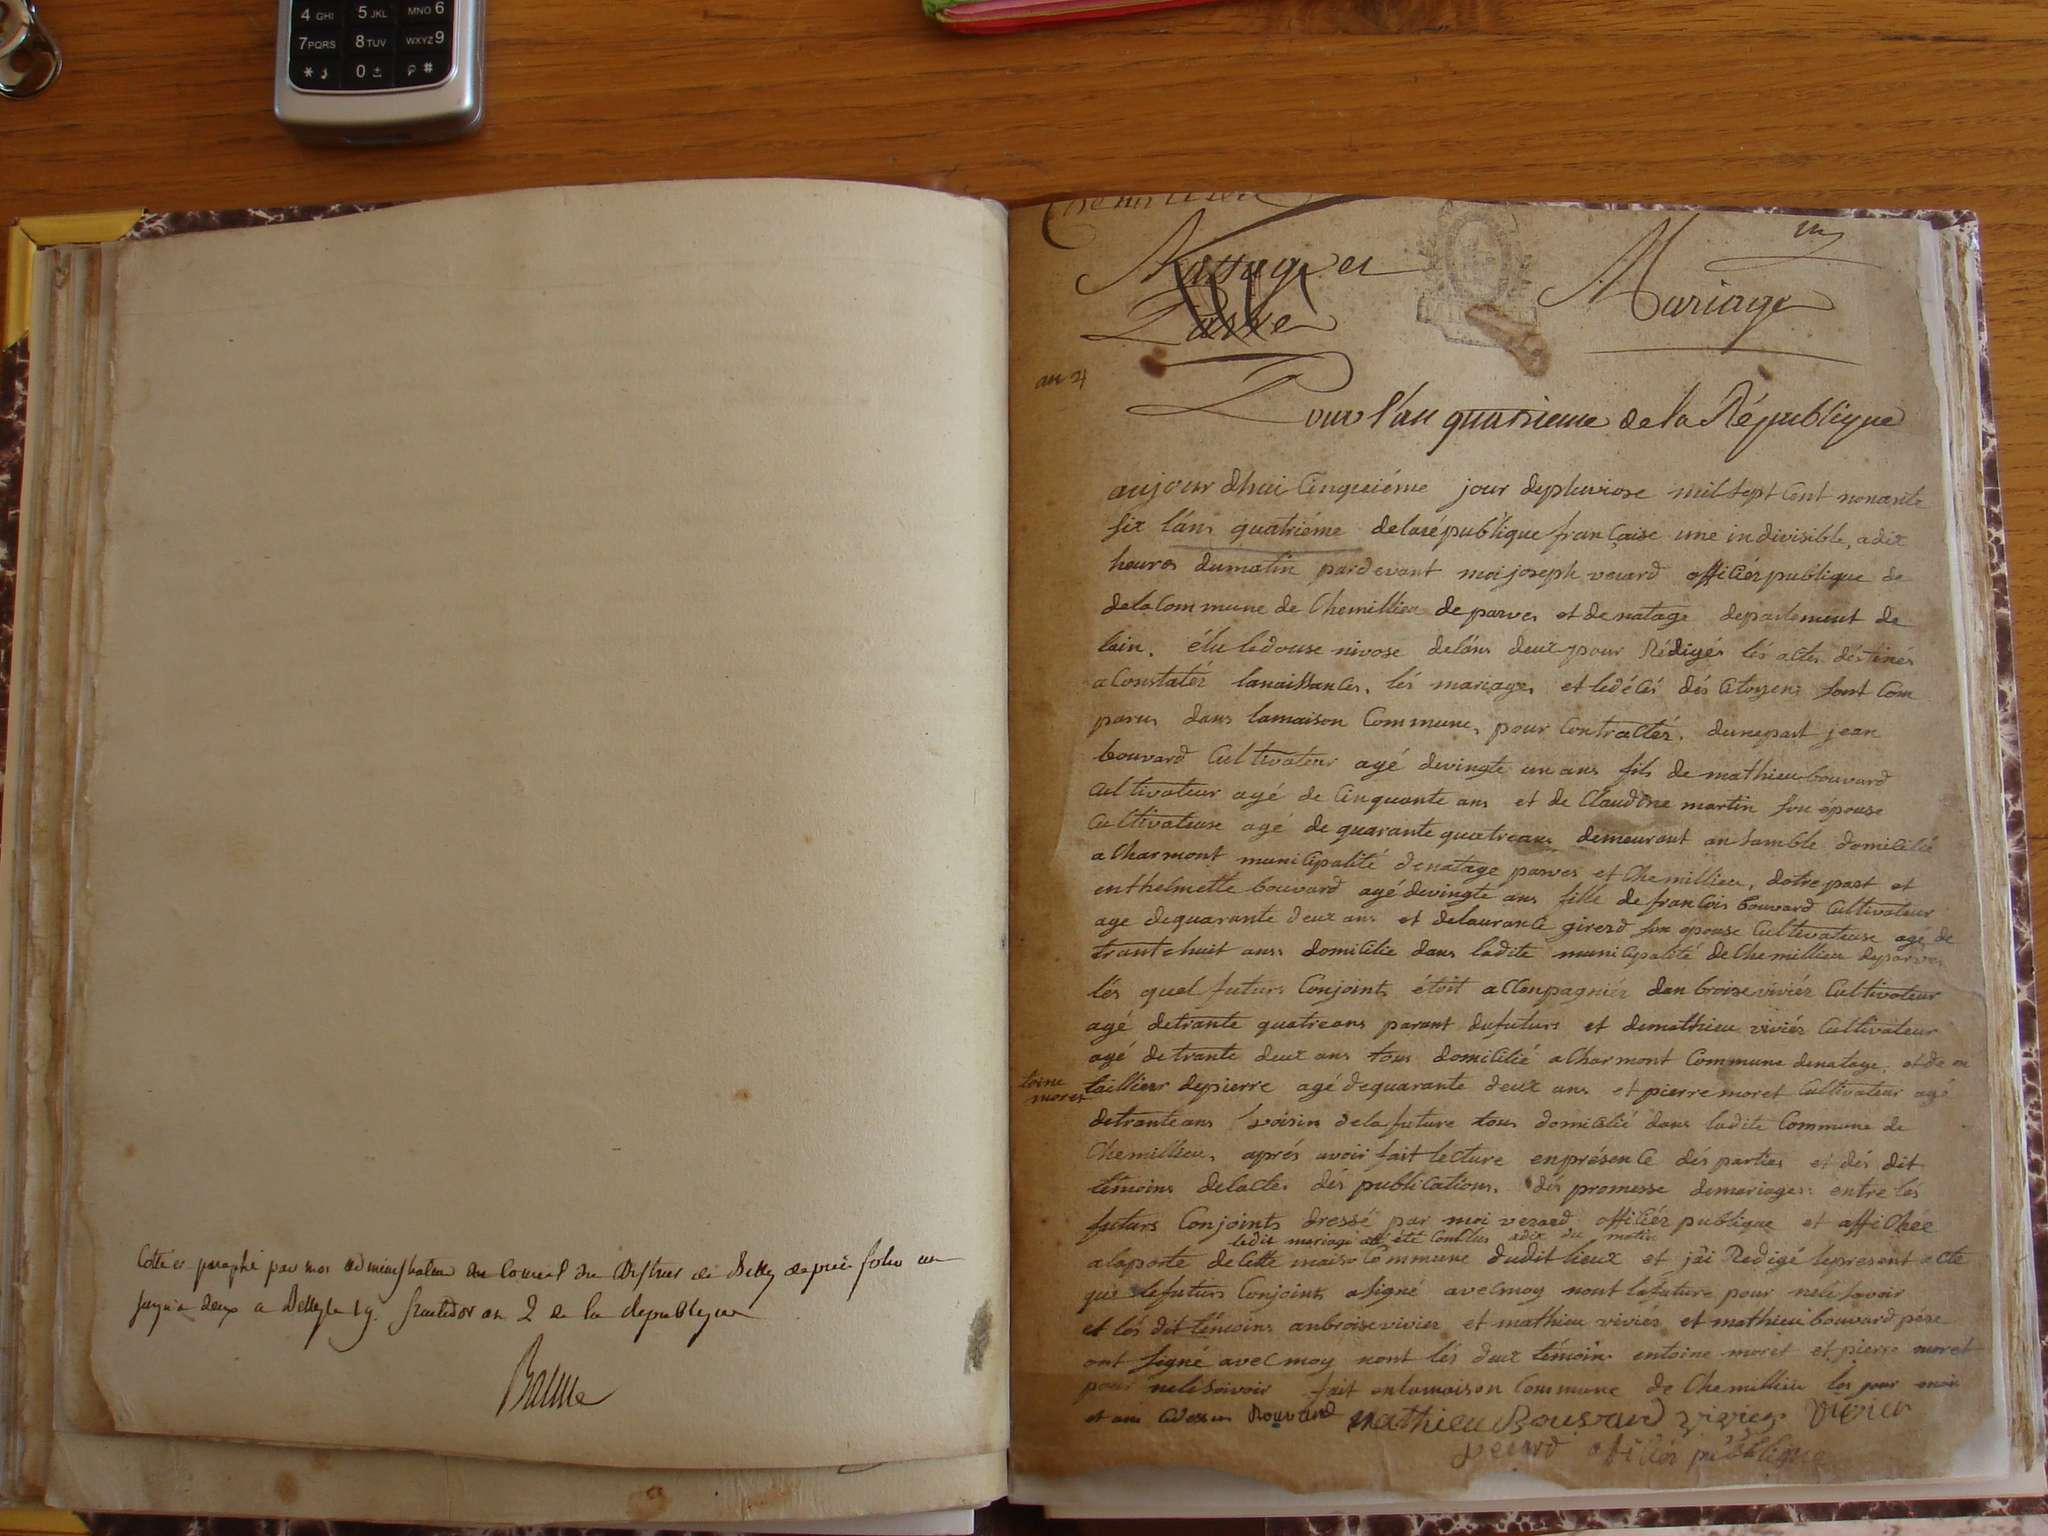 4 GHI 5 JKL MNO 6
7 PQRS 8 TUV WXYZ 9
* 0 ± #
Cotté et paraphé par moi administrateur du Conseil du District de Belley depuis folio un
jusqu'a deux a Belley le 19 fructidor an 2 de la republique
Baime
Chemillieu
un
Mariage
Parve
an 4
Pour l'an quatrieme de la République
aujour dhui Cinquiéme jour depluviose mil sept Cent nonante
six lans quatriéme delarépublique française une indivisible, a dix
heures dumatin pardevant moi joseph verard officiér publique de
delaCommune de Chemillieu de parves et de natage departement de
lain. élu ledouse nivose delans deux pour Rédigér lés actes déstinés
aConstatér lanaissances, lés mariages et ledécés dés Citoyens sont Com
parus dans lamaison Commune, pour Contractér, dunepart jean
bouvard Cultivateur agé devingte un ans fils de mathieu bouvard
Cultivateur agé de Cinquante ans et de Claudine martin son épouse
Cultivateuse agé de quarante quatreans demeurant ansamble domicilié
a Charmont municipalité denatage parves et Chemillieu, dotre part et
enthelmette bouvard agé devingte ans fille de francois bouvard Cultivateur
age dequarante deux ans et delaurance girerd son epouse Cultivateuse agé de
trante huit ans domicilie dans ladite municipalité deChemillieu deparves
lés quel futurs Conjoints étoit acConpagniér danbroise viviér Cultivateur
agé detrante quatreans parant dufuturs et demathieu viviér Cultivateur
agé detrante deux ans tous domicilié aCharmont Commune denatage. et de en
toine
moret
taillieur depierre agé dequarante deux ans et pierre moret Cultivateur agé
detranteans voisin delafuture tous domicilié dans ladite Commune de
Chemillieu, aprés avoir fait lecture enprésence dés parties et dés dit
témoins delactes dés publications, dés promesse demariages entre lés
futurs Conjoints dressé par moi verard officiér publique et affichée
ledit mariage a été Conclus adix du matin
alaporte deCette maison Commune dudit lieux et jai Redigé lepresent acte
que lefuturs Conjoints asigné avecmoy nont lafuture pour nelésavoir
et lés dit témoins anbroise vivier et mathieu viviér et mathieu bouvard pére
ont signé avecmoy nont lés deux témoins entoine moret et pierre moret
pour nelesavoir fait enlamaison Commune de Chemillieu les jour mois
et ans Cidessus Bouvard mathieu Bouvard vivier vivier
verard officiér publique